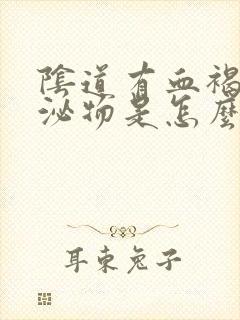 陰道有血褐
泌物是怎麼
耳東兔子